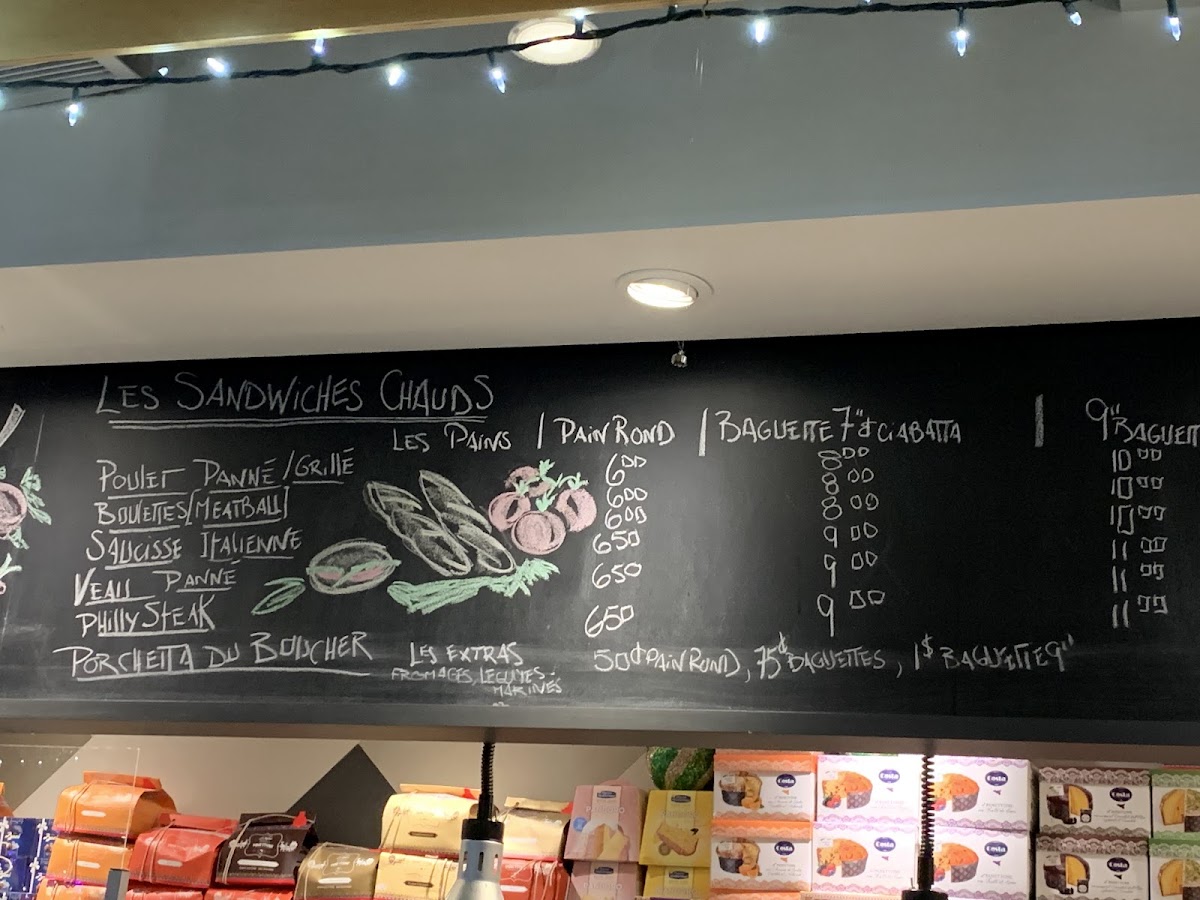 LES SANDWICHES CHAUDS
LES PAINS | PAIN ROND | BAGUETTE 7" & CIABATTA | 9" BAGUETT
POULET PANNÉ / GRILLÉ 6 00 8 00 10 00
BOULETTES [MEATBALL] 6 00 8 00 10 00
SAUCISSE ITALIENNE 6 00 8 00 10 00
VEAU PANNÉ 6 50 9 00 11 00
PHILLY STEAK 6 50 9 00 11 00
PORCHETTA DU BOUCHER 6 50 9 00 11 00
LES EXTRAS 50¢ PAIN ROND, 75¢ BAGUETTES, 1$ BAGUETTE 9"
FROMAGES, LÉGUMES
MARINÉS
Costa Costa Costa Costa
Costa Costa Costa Costa